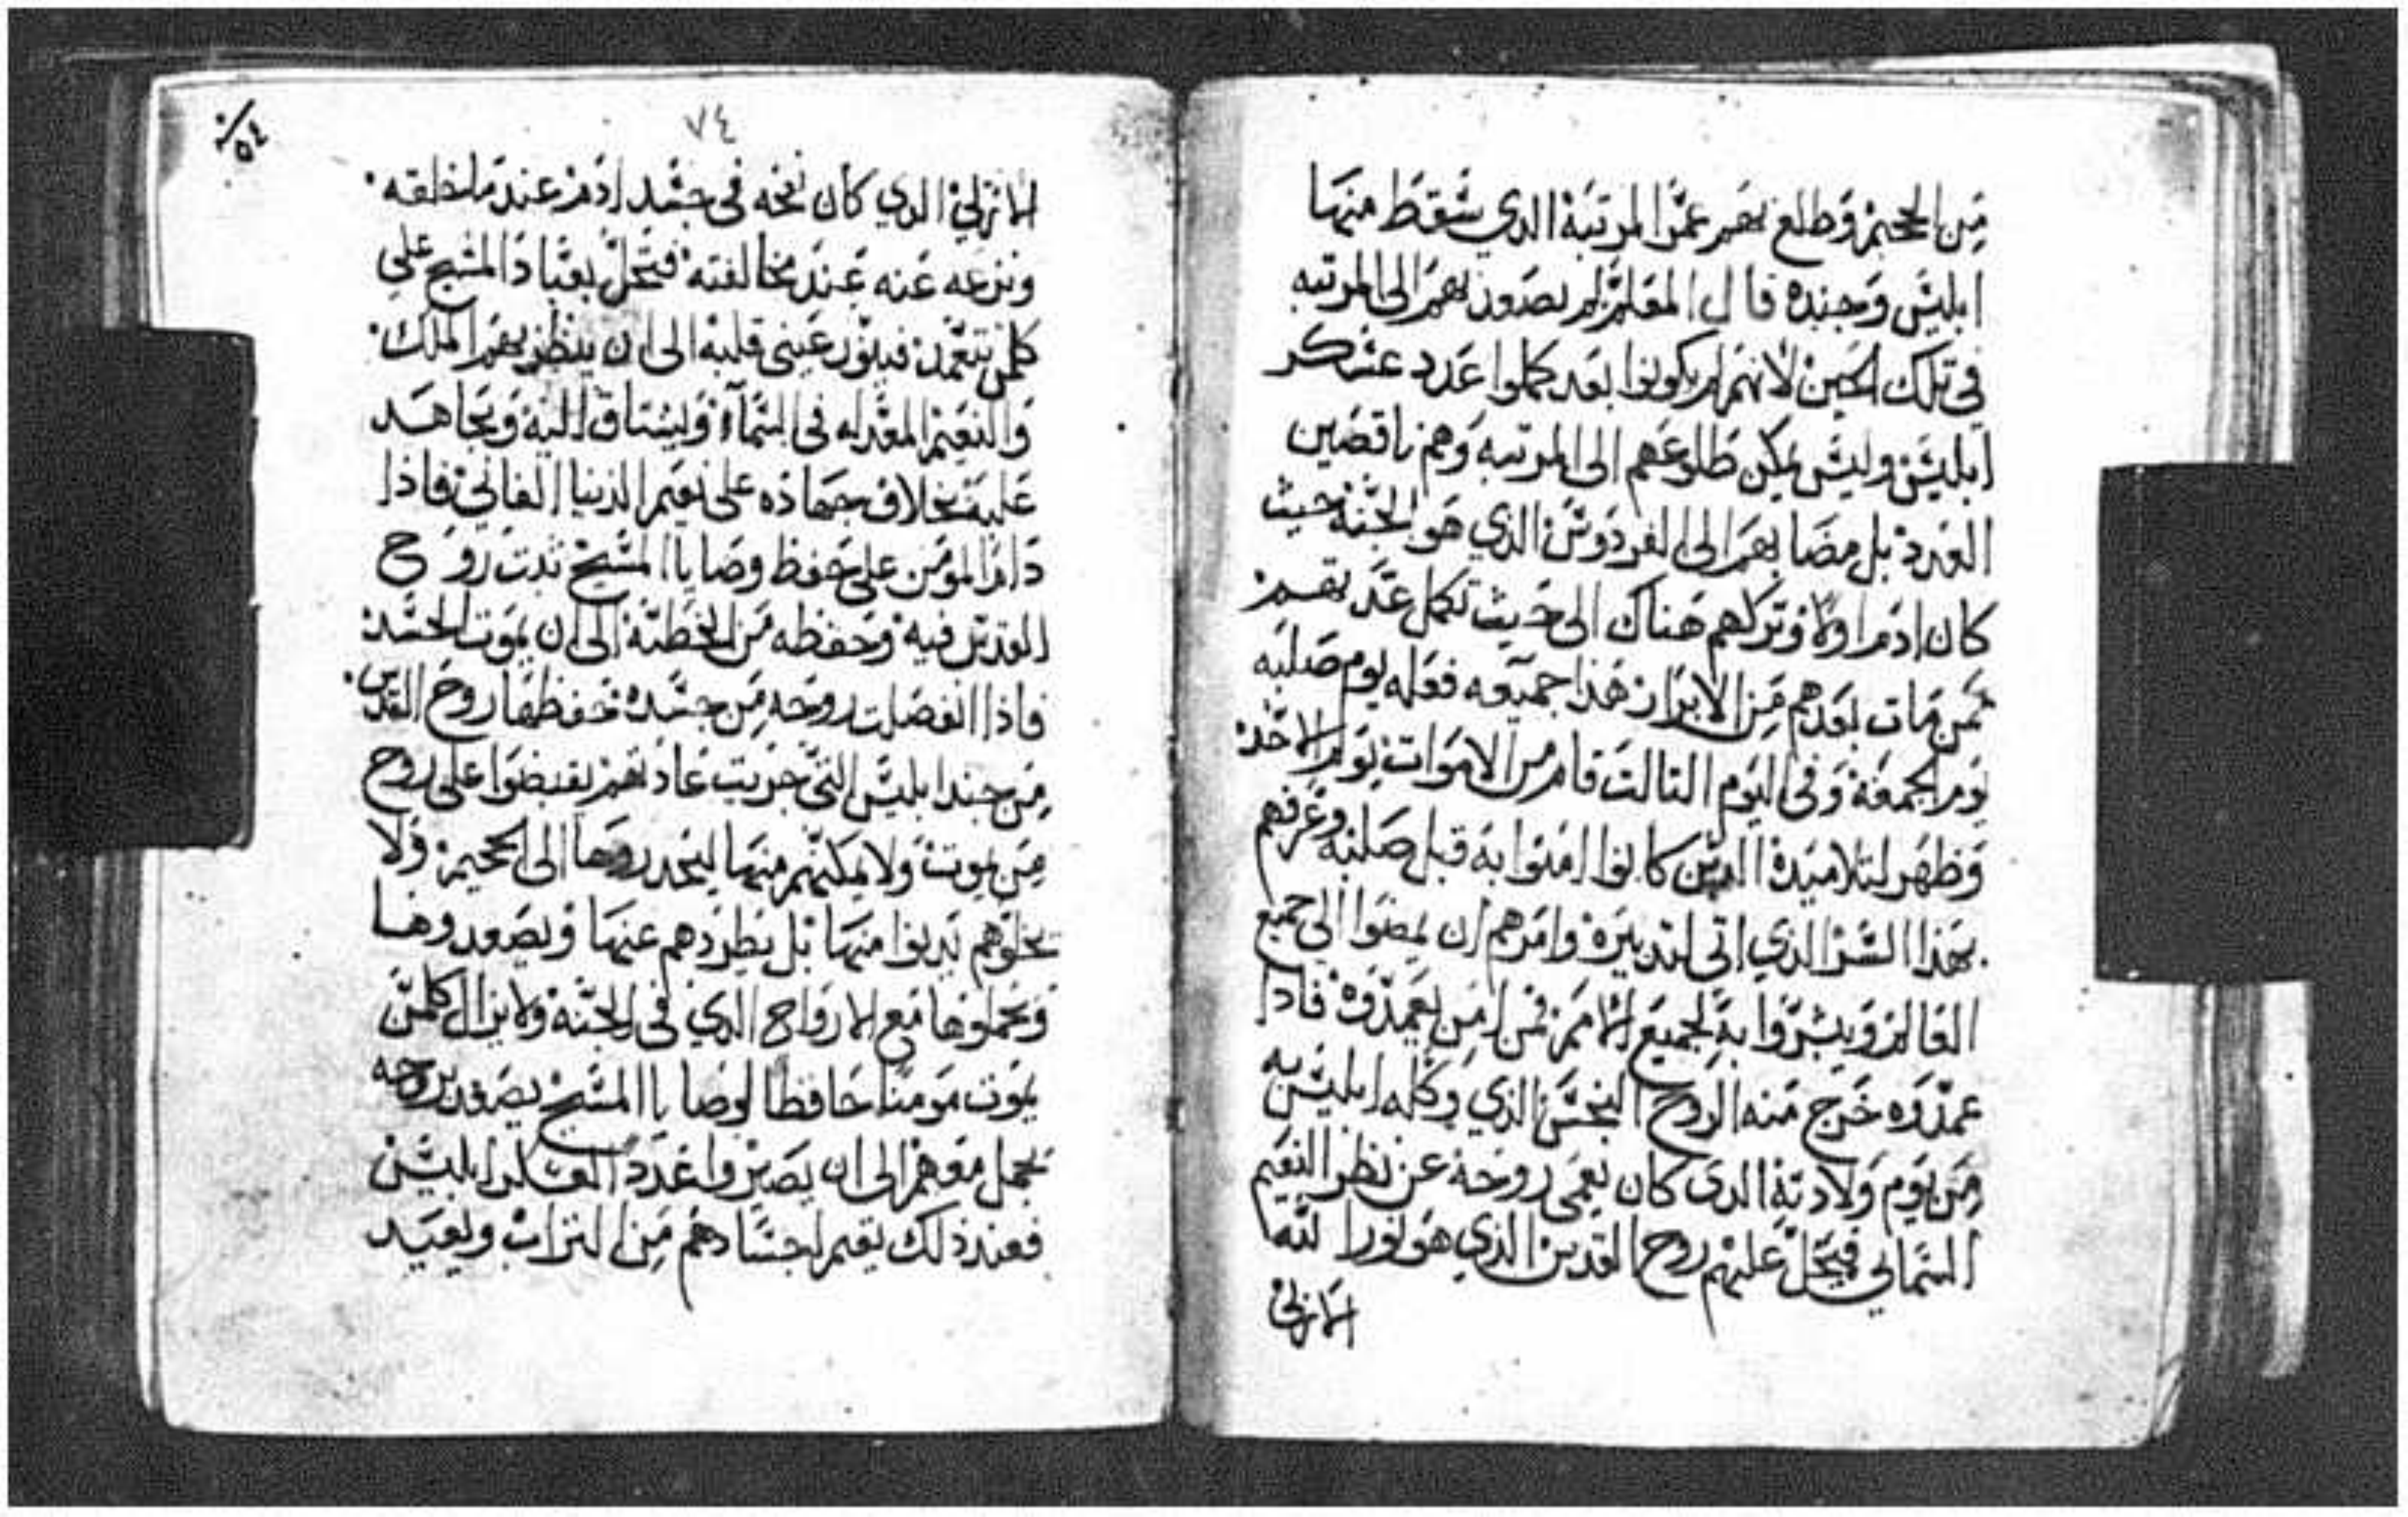 من الجحيم وطلع بهم عمّر المرتبة الدي سقط منها
ابليس وجنده قال المعلم لم يصعد بهم الى المرتبه
في تلك الحين لانهم لم يكونوا بعد كملوا عدد عسكر
ابليس وليس يمكن طلوعهم الى المرتبه وهم ناقصين
العدد بل مضا بهم الى الفردوس الذي هو الجنة حيث
كان ادم اولا وتركهم هناك الى حيث تكمل عدتهم
ممن مات بعدهم من الابرار هذا جميعه فعله يوم صلبه
يوم الجمعة وفى اليوم التالت قام من الاموات يوم الاحد
وظهر لتلاميدة الدين كانوا امنوا به قبل صلبه وعرفهم
بهذا السر الذي اتى لتدبيرة وامرهم ان يمضوا الى جميع
العالم ويبشروا به لجميع الامم فمن امن يعمدوه فادا
عمدوه خرج منه الروح النجس الذي وكله ابليس به
من يوم ولادته الدى كان يعمى روحه عن نظر النعيم
السماىي فيحل عليهم روح القدس الذي هو نور الله
الازلي
٧٤
٥٤
الازلي الدي كان نفخه فى جسد ادم عند ما خلقه
ونزعه عنه عند مخالفته فتحل بعباد المسيح على
كلمن يتعمد فينور عيني قلبه الى ان ينظر بهم الملك
والنعيم المعد له فى السماء ويشتاق اليه ويجاهد
عليه بخلاف جهاده على نعيم الدنيا الفاني فاذا
دام المومن على حفظ وصايا المسيح تبت روح
القدس فيه وحفظه من الخطية الى ان يموت الجسد
فاذا انفصلت روحه من جسده حفظها روح القدس
من جند ابليس التي جريت عادتهم يقبضوا على روح
من يموت ولا يمكنهم منها ليحدروها الى الجحيم ولا
يخلوهم يدنوا منها بل يطردهم عنها ويصعدوها
ويجعلوها مع الارواح الدي فى الجنة ولا يزال كلمن
يموت مومنا حافظا لوصايا المسيح يصعد بروحه
تجعل معهم الى ان يصيروا عدد العسكر ابليس
فعند ذلك يقيم اجسادهم من التراب ويعيد